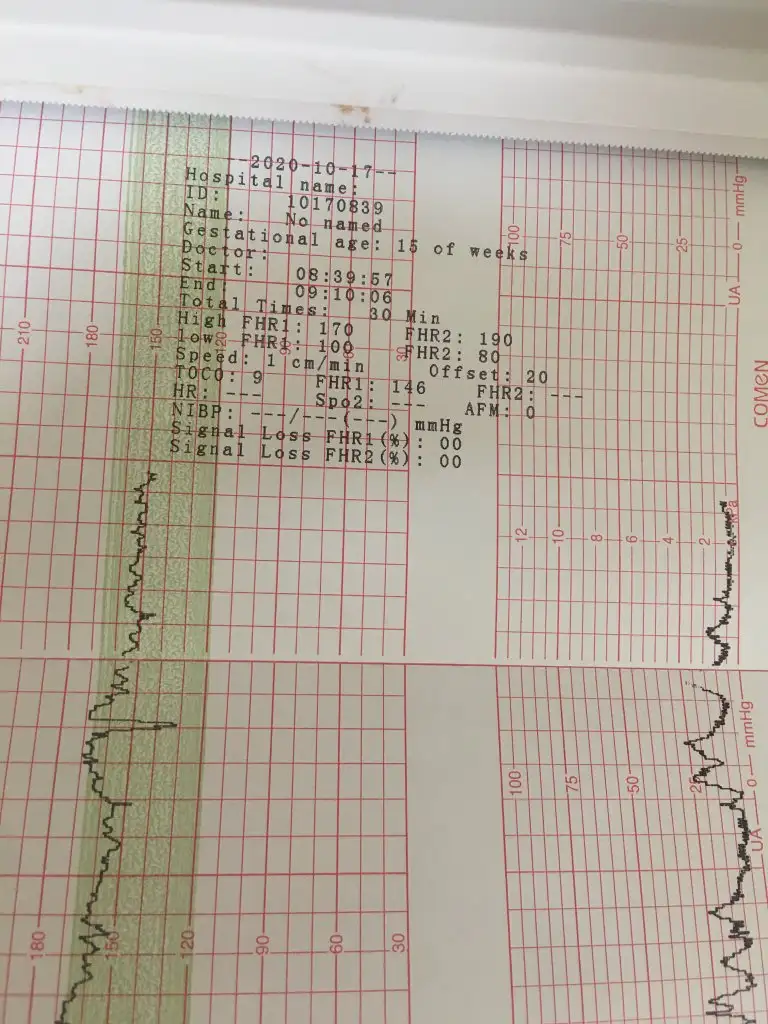 --2020-10-17--
Hospital name:
ID: 10170839
Name: No named
Gestational age: 15 of weeks
Doctor:
Start: 08:39:57
End: 09:10:06
Total Times: 30 Min
High FHR1: 170 FHR2: 190
low FHR1: 100 FHR2: 80
Speed: 1 cm/min Offset: 20
TOCO: 9 FHR1: 146 FHR2: ---
HR: --- Spo2: --- AFM: 0
NIBP: ---/---(---) mmHg
Signal Loss FHR1(%): 00
Signal Loss FHR2(%): 00
210 180 150 120 30
100 75 50 25 0 mmHg
UA
COMEN
12 10 8 6 4 2 kPa
100 75 50 25 0 mmHg
UA
180 150 120 90 60 30